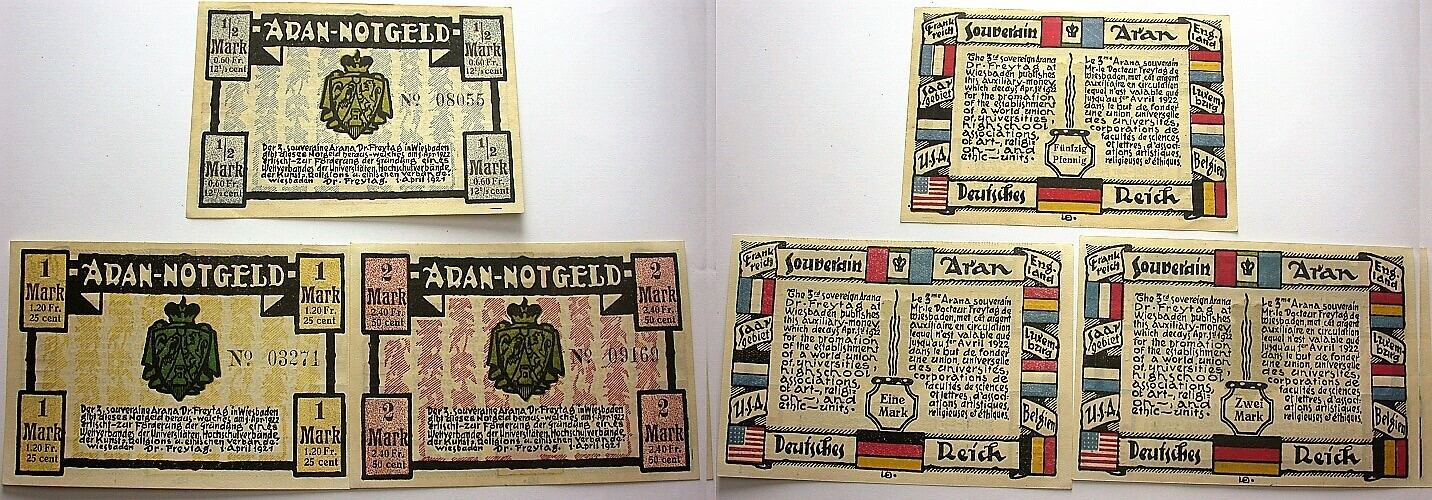 1/2
Mark
0.60 Fr.
12½ cent
ARAN-NOTGELD
1/2
Mark
0.60 Fr.
12½ cent
Nº 08055
1/2
Mark
0.60 Fr.
12½ cent
Der 3. souveräne Arana Dr. Freytag in Wiesbaden
gibt dieses Notgeld heraus-welches am 1.Apr.1922
erlischt-zur Förderung der Gründung eines
Weltverbandes der Universitäten, Hochschulverbände,
der Kunst-, Religions u. ethischen Verbände.
Wiesbaden Dr. Freytag. 1. April 1921
1/2
Mark
0.60 Fr.
12½ cent
1
Mark
1.20 Fr.
25 cent
ARAN-NOTGELD
1
Mark
1.20 Fr.
25 cent
Nº 03271
1
Mark
1.20 Fr.
25 cent
Der 3. souveräne Arana Dr. Freytag in Wiesbaden
gibt dieses Notgeld heraus-welches am 1.Apr.1922
erlischt-zur Förderung der Gründung eines
Weltverbandes der Universitäten, Hochschulverbände,
der Kunst-, Religions u. ethischen Verbände.
Wiesbaden Dr. Freytag. 1. April 1921
1
Mark
1.20 Fr.
25 cent
2
Mark
2.40 Fr.
50 cent
ARAN-NOTGELD
2
Mark
2.40 Fr.
50 cent
Nº 09169
2
Mark
2.40 Fr.
50 cent
Der 3. souveräne Arana Dr. Freytag in Wiesbaden
gibt dieses Notgeld heraus-welches am 1.Apr.1922
erlischt-zur Förderung der Gründung eines
Weltverbandes der Universitäten, Hochschulverbände,
der Kunst-, Religions u. ethischen Verbände.
Wiesbaden Dr. Freytag. 1. April 1921
2
Mark
2.40 Fr.
50 cent
Frank
reich
Souverain Aran
Eng-
land
Saar
gebiet
Luxem-
burg
U.S.A.
Belgien
The 3rd sovereign Arana
Dr. Freytag at
Wiesbaden publishes
this auxiliary-money
which decays Apr. 1st 1922
for the promation
of the establishment
of a world union
of universities,
highschool
associations,
of art-, religi
on-, and
ethic-units.
Le 3me Arana souverain
Mr. le Docteur Freytag de
Wiesbaden, met cet argent
auxiliaire en circulation
lequel n'est valable que
jusqu'au 1er Avril 1922
dans le but de fonder
une union, universelle
des universités,
corporations de
facultés de sciences
et lettres, d'associ-
ations artistiques,
religieuses et éthiques
Fünfzig
Pfennig
Deutsches Reich
Frank
reich
Souverain Aran
Eng-
land
Saar
gebiet
Luxem-
burg
U.S.A.
Belgien
The 3rd sovereign Arana
Dr. Freytag at
Wiesbaden publishes
this auxiliary-money
which decays Apr. 1st 1922
for the promation
of the establishment
of a world union
of universities,
highschool
associations,
of art-, religi
on-, and
ethic-units-
Le 3me Arana souverain
Mr. le Docteur Freytag de
Wiesbaden, met cet argent
auxiliaire en circulation
lequel n'est valable que
jusqu'au 1er Avril 1922
dans le but de fonder
une union, universelle
des universités,
corporations de
facultés de sciences
et lettres, d'associ-
ations artistiques,
religieuses et éthiques
Eine
Mark
Deutsches Reich
Frank
reich
Souverain Aran
Eng-
land
Saar
gebiet
Luxem-
burg
U.S.A.
Belgien
The 3rd sovereign Arana
Dr. Freytag at
Wiesbaden publishes
this auxiliary-money
which decays Apr. 1st 1922
for the promation
of the establishment
of a world union
of universities,
highschool
associations,
of art-, religi
on-, and
ethic-units-
Le 3me Arana souverain
Mr. le Docteur Freytag de
Wiesbaden, met cet argent
auxiliaire en circulation
lequel n'est valable que
jusqu'au 1er Avril 1922
dans le but de fonder
une union, universelle
des universités,
corporations de
facultés de sciences
et lettres, d'associ-
ations artistiques,
religieuses et éthiques
Zwei
Mark
Deutsches Reich